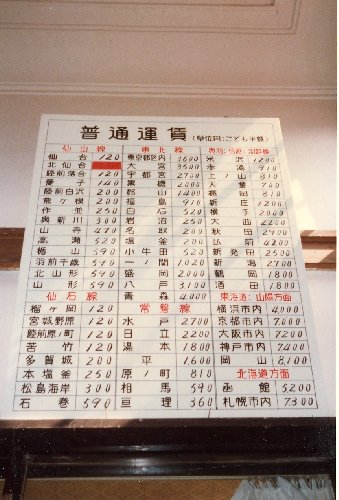 普通運賃
(単位円:こども半額)
仙山線
仙台 120
北仙台
陸前落合 120
愛子 140
陸前白沢 200
熊ヶ根 200
作並 250
奥新川 300
山寺 470
高瀬 520
楯山 590
羽前千歳 590
北山形 590
山形 590
仙石線
榴ヶ岡 120
宮城野原 120
陸前原ノ町 120
苦竹 120
多賀城 200
本塩釜 250
松島海岸 300
石巻 590
東北線
東京都区内 3600
大宮 3500
宇都宮 2700
黒磯 2000
郡山 1400
福島 910
白石 520
岩沼 250
名取 200
塩釜 200
小牛田 520
一ノ関 1020
盛岡 2000
八戸 3100
青森 4000
常磐線
水戸 2700
日立 2200
湯本 1800
平 1600
原ノ町 810
相馬 590
亘理 360
米沢 1200
赤湯 910
上ノ山 810
天童 700
楯岡 810
新庄 1200
横手 2000
大曲 2200
秋田 2900
弘前 4200
新発田 2500
新潟 2700
鶴岡 1800
酒田 1800
東海道:山陽方面
横浜市内 4000
京都市内 7000
大阪市内 7200
神戸市内 7400
岡山 8100
北海道方面
函館 5200
札幌市内 7300